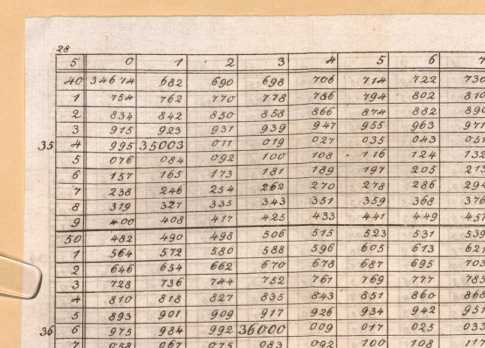 28
5 0 1 2 3 4 5 6 7
40 34674 682 690 698 706 714 722 730
1 754 762 770 778 786 794 802 810
2 834 842 850 858 866 874 882 890
3 915 923 931 939 947 955 963 971
35 4 995 35003 011 019 027 035 043 051
5 076 084 092 100 108 116 124 132
6 157 165 173 181 189 197 205 213
7 238 246 254 262 270 278 286 294
8 319 327 335 343 351 359 368 376
9 400 408 417 425 433 441 449 457
50 482 490 498 506 515 523 531 539
1 564 572 580 588 596 605 613 621
2 646 654 662 670 678 687 695 703
3 728 736 744 752 761 769 777 785
4 810 818 827 835 843 851 860 868
5 893 901 909 917 926 934 942 951
36 6 975 984 992 36000 009 017 025 033
7 058 067 075 083 092 100 108 117